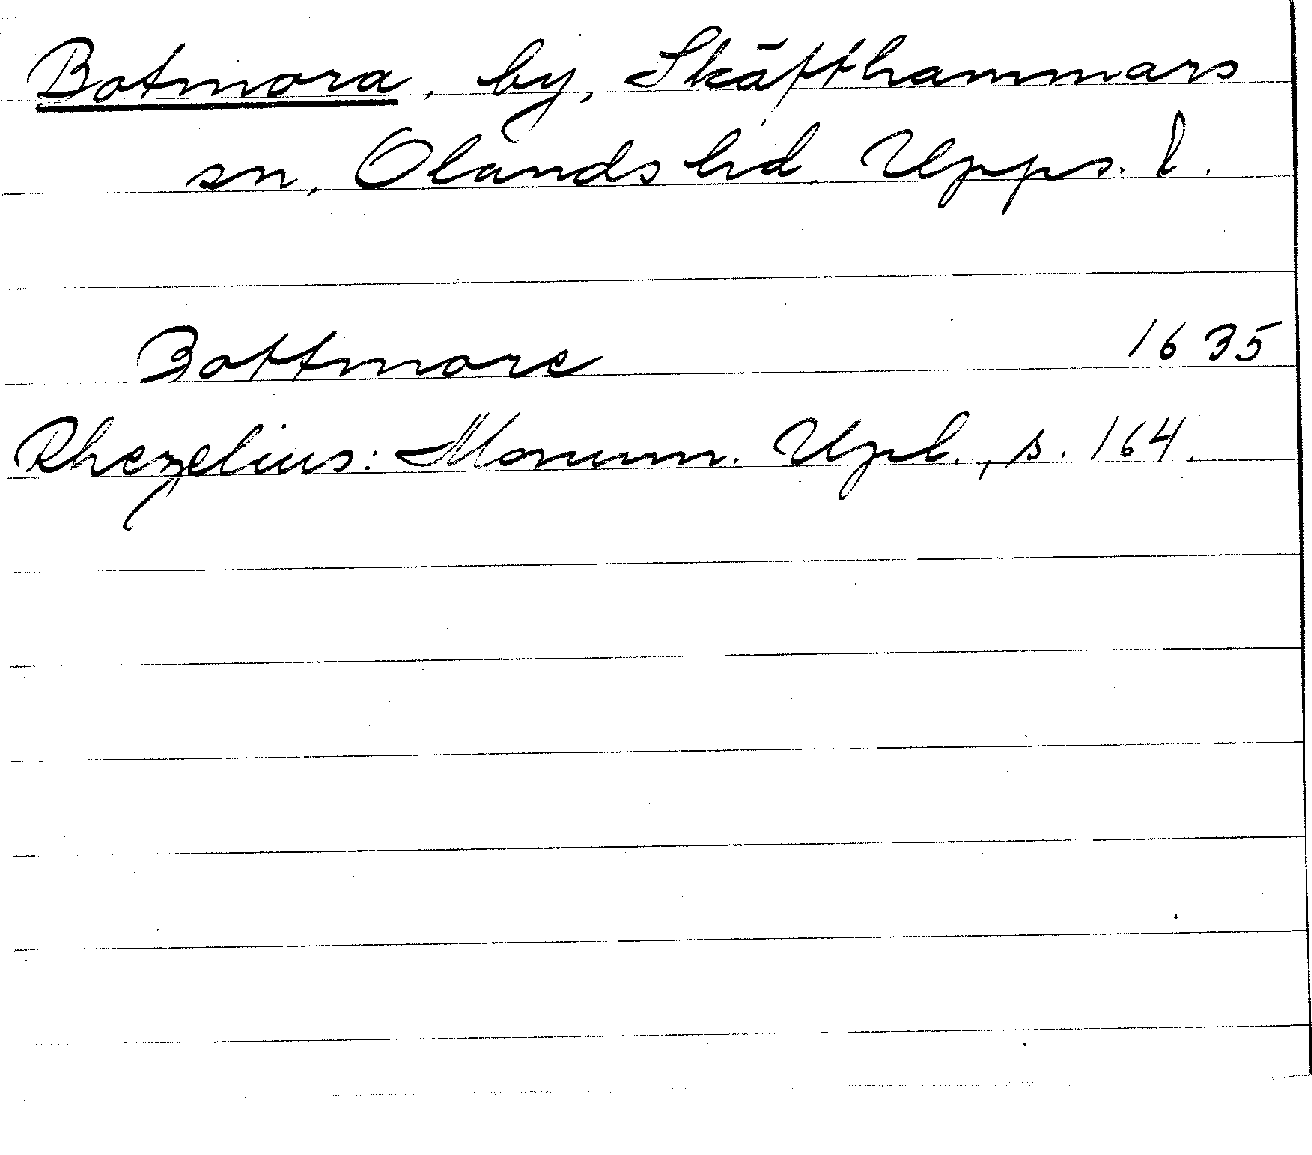 Botmora, by, Skäfthammars
sn, Olands hd, Upps. l.
Bottmore 1635
Rhezelius: Monum. Upl., s. 164.